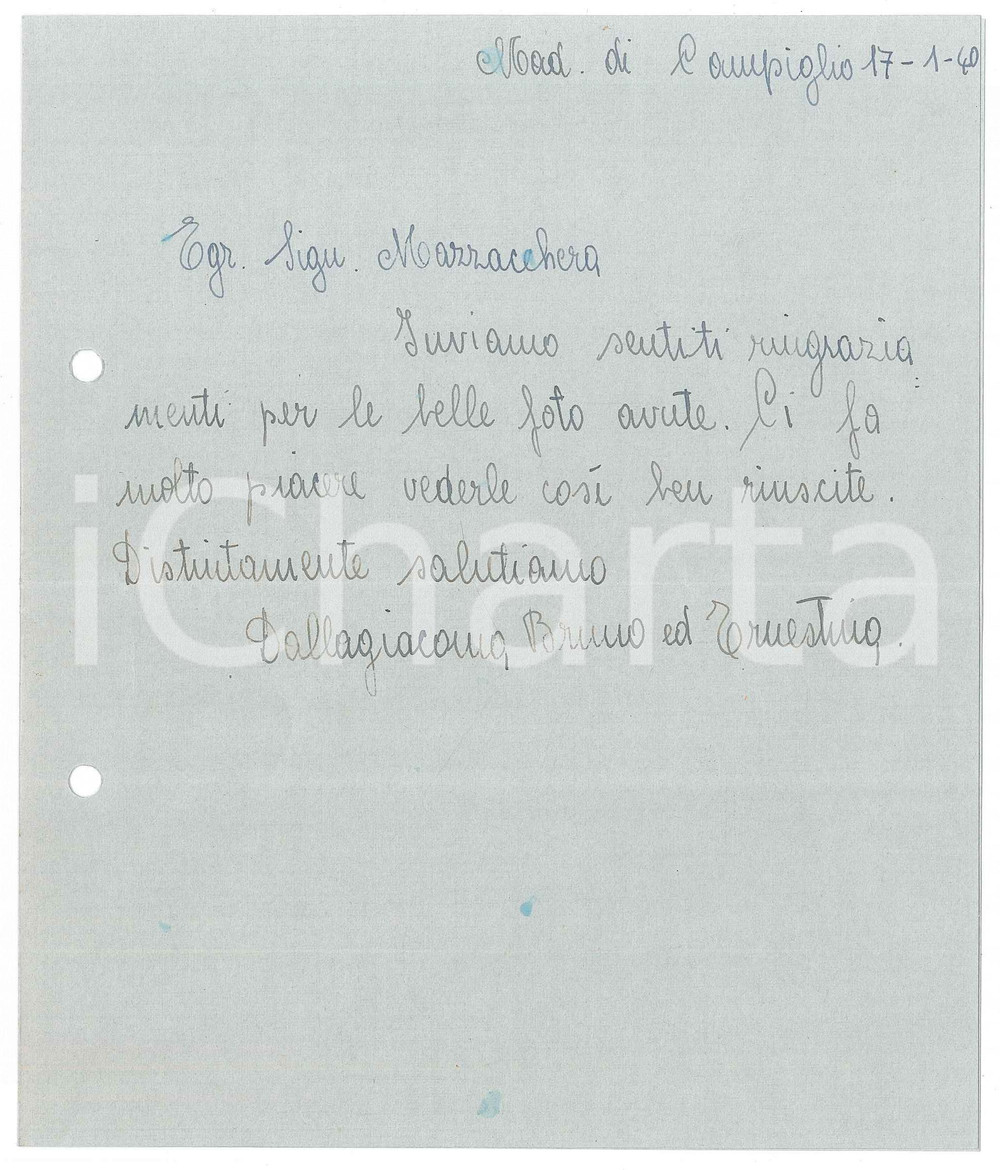 Mad. di Campiglio 17-1-40
Egr. Sign. Mazzacchera
Inviamo sentiti ringrazia
menti per le belle foto avute. Ci fa
molto piacere vederle così ben riuscite.
Distintamente salutiamo
Dallagiacoma Bruno ed Ernestina.
iCharta